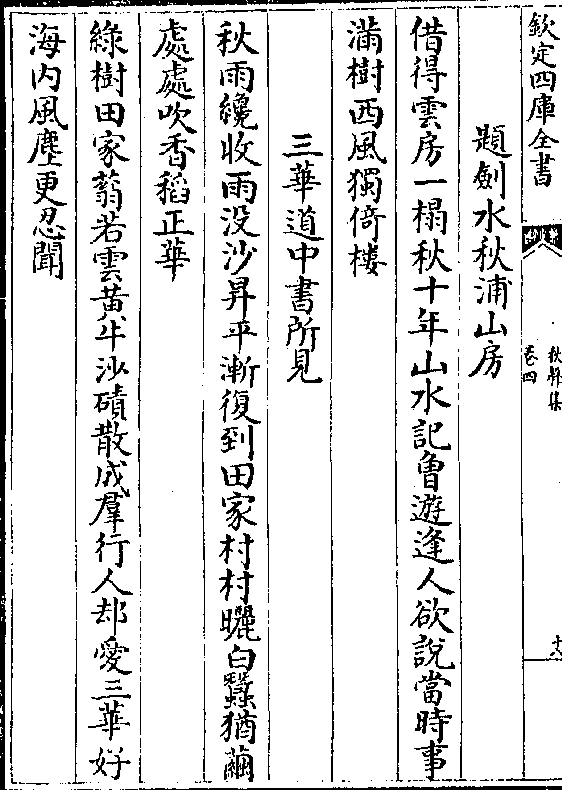 欽定四庫全書
秋聲集
卷四
題劒水秋浦山房
借得雲房一榻秋十年山水記曾遊逢人欲說當時事
滿樹西風獨倚樓
三華道中書所見
秋雨纔收雨没沙昇平漸復到田家村村曬白蠶猶繭
處處吹香稻正華
綠樹田家蓊若雲黄牛沙磧散成羣行人却愛三華好
海内風塵更忍聞